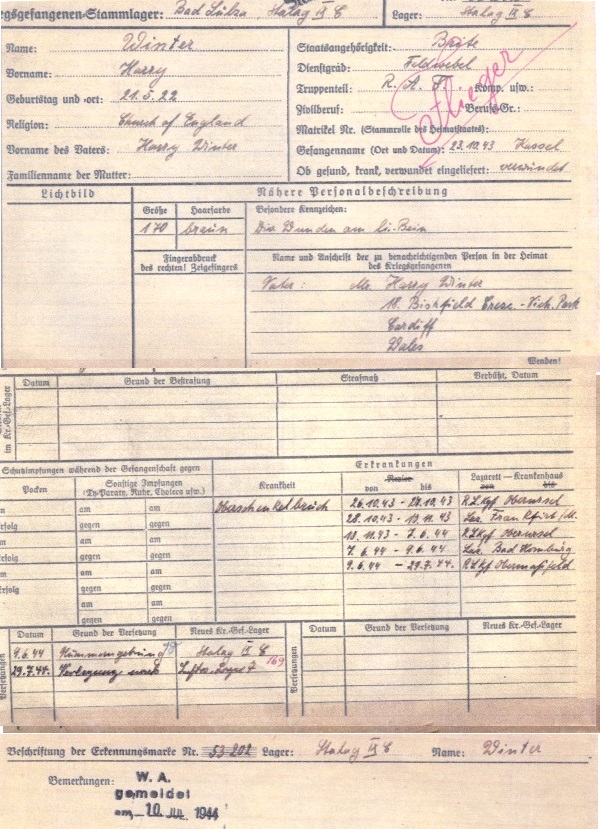 egsgefangenen-Stammlager: Bad Sulza, Stalag IX C Lager: Stalag IX C
Name: Winter
Vorname: Harry
Geburtstag und -ort: 21.5.22
Religion: Church of England
Vorname des Vaters: Harry Winter
Familienname der Mutter:
Staatsangehörigkeit: Brite
Dienstgrad: Feldwebel
Truppenteil: R. A. F. Komp. usw.:
Zivilberuf: Berufs-Gr.:
Flieger
Matrikel Nr. (Stammrolle des Heimatstaates):
Gefangenname (Ort und Datum): 23.10.43 Kassel
Ob gesund, krank, verwundet eingeliefert: verwundet
Lichtbild
Nähere Personalbeschreibung
Größe Haarfarbe Besondere Kennzeichen:
170 braun Wunden am Bein
Fingerabdruck
des rechten! Zeigefingers
Name und Anschrift der zu benachrichtigenden Person in der Heimat
des Kriegsgefangenen
Vater: Mr. Harry Winter
18. Cresc. - Vict. Park
Cardiff
Wales
Wenden!
im Kr.-Gef.-Lager
Datum Grund der Bestrafung Strafmaß Verbüßt, Datum
Schutzimpfungen während der Gefangenschaft gegen
Erkrankungen
Pocken
Sonstige Impfungen
(Ty-Paraty, Ruhr, Cholera usw.)
Krankheit
Revier
von bis
Lazarett — Krankenhaus
von bis
am am Oberschenkelbruch 26.10.43 - 28.10.43 R.L.Kgf. Oberursel
erfolg gegen gegen 28.10.43 - 43 Laz. Frankfurt/M.
am am 43 - 7.6.44 R.L.Kgf. Oberursel
erfolg gegen gegen 7.6.44 - 9.6.44 Laz. Bad Homburg
am am 9.6.44 - 29.7.44. R.L.Kgf. Obermaßfeld
erfolg gegen gegen
am am
gegen gegen
Versetzungen
Datum Grund der Versetzung Neues Kr.-Gef.-Lager
9.6.44 Nummerngebung Stalag IX C
29.7.44. Verlegung nach Luftw. Lager 7 169
Versetzungen
Datum Grund der Versetzung Neues Kr.-Gef.-Lager
Beschriftung der Erkennungsmarke Nr. 53202 Lager: Stalag IX C Name: Winter
Bemerkungen: W. A.
gemeldet
am 10. JUL. 1944